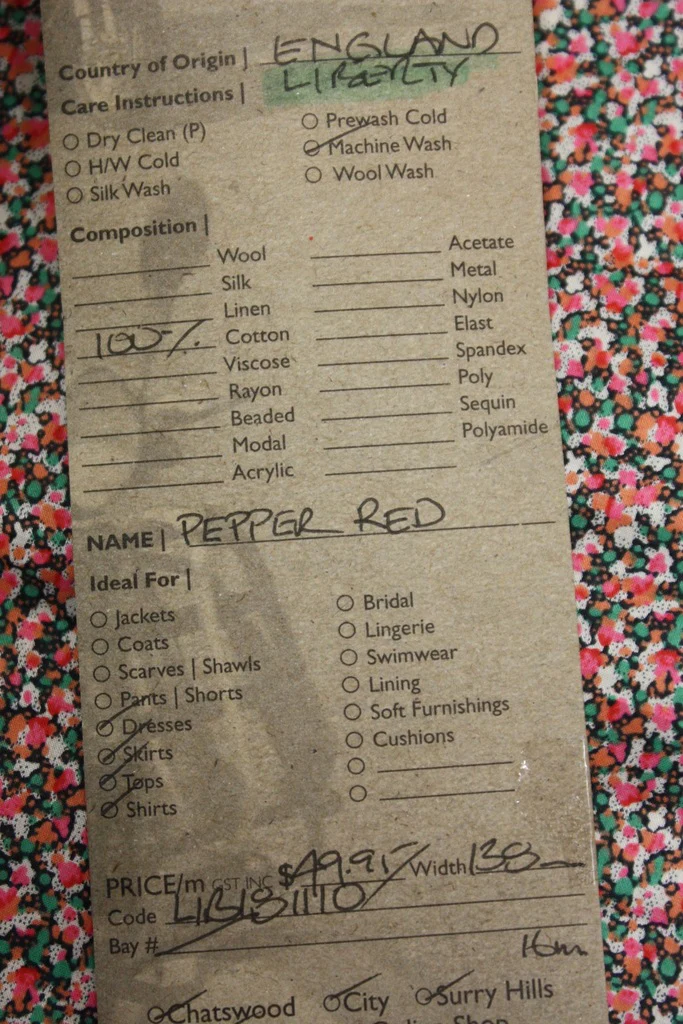 Country of Origin | ENGLAND
LIBERTY
Care Instructions |
Dry Clean (P)
H/W Cold
Silk Wash
Prewash Cold
Machine Wash
Wool Wash
Composition |
Wool
Silk
Linen
100% Cotton
Viscose
Rayon
Beaded
Modal
Acrylic
Acetate
Metal
Nylon
Elast
Spandex
Poly
Sequin
Polyamide
NAME | PEPPER RED
Ideal For |
Jackets
Coats
Scarves | Shawls
Pants | Shorts
Dresses
Skirts
Tops
Shirts
Bridal
Lingerie
Swimwear
Lining
Soft Furnishings
Cushions
PRICE/m GST INC $49.95 Width 138
Code
Bay #
16m
Chatswood City Surry Hills
Shop